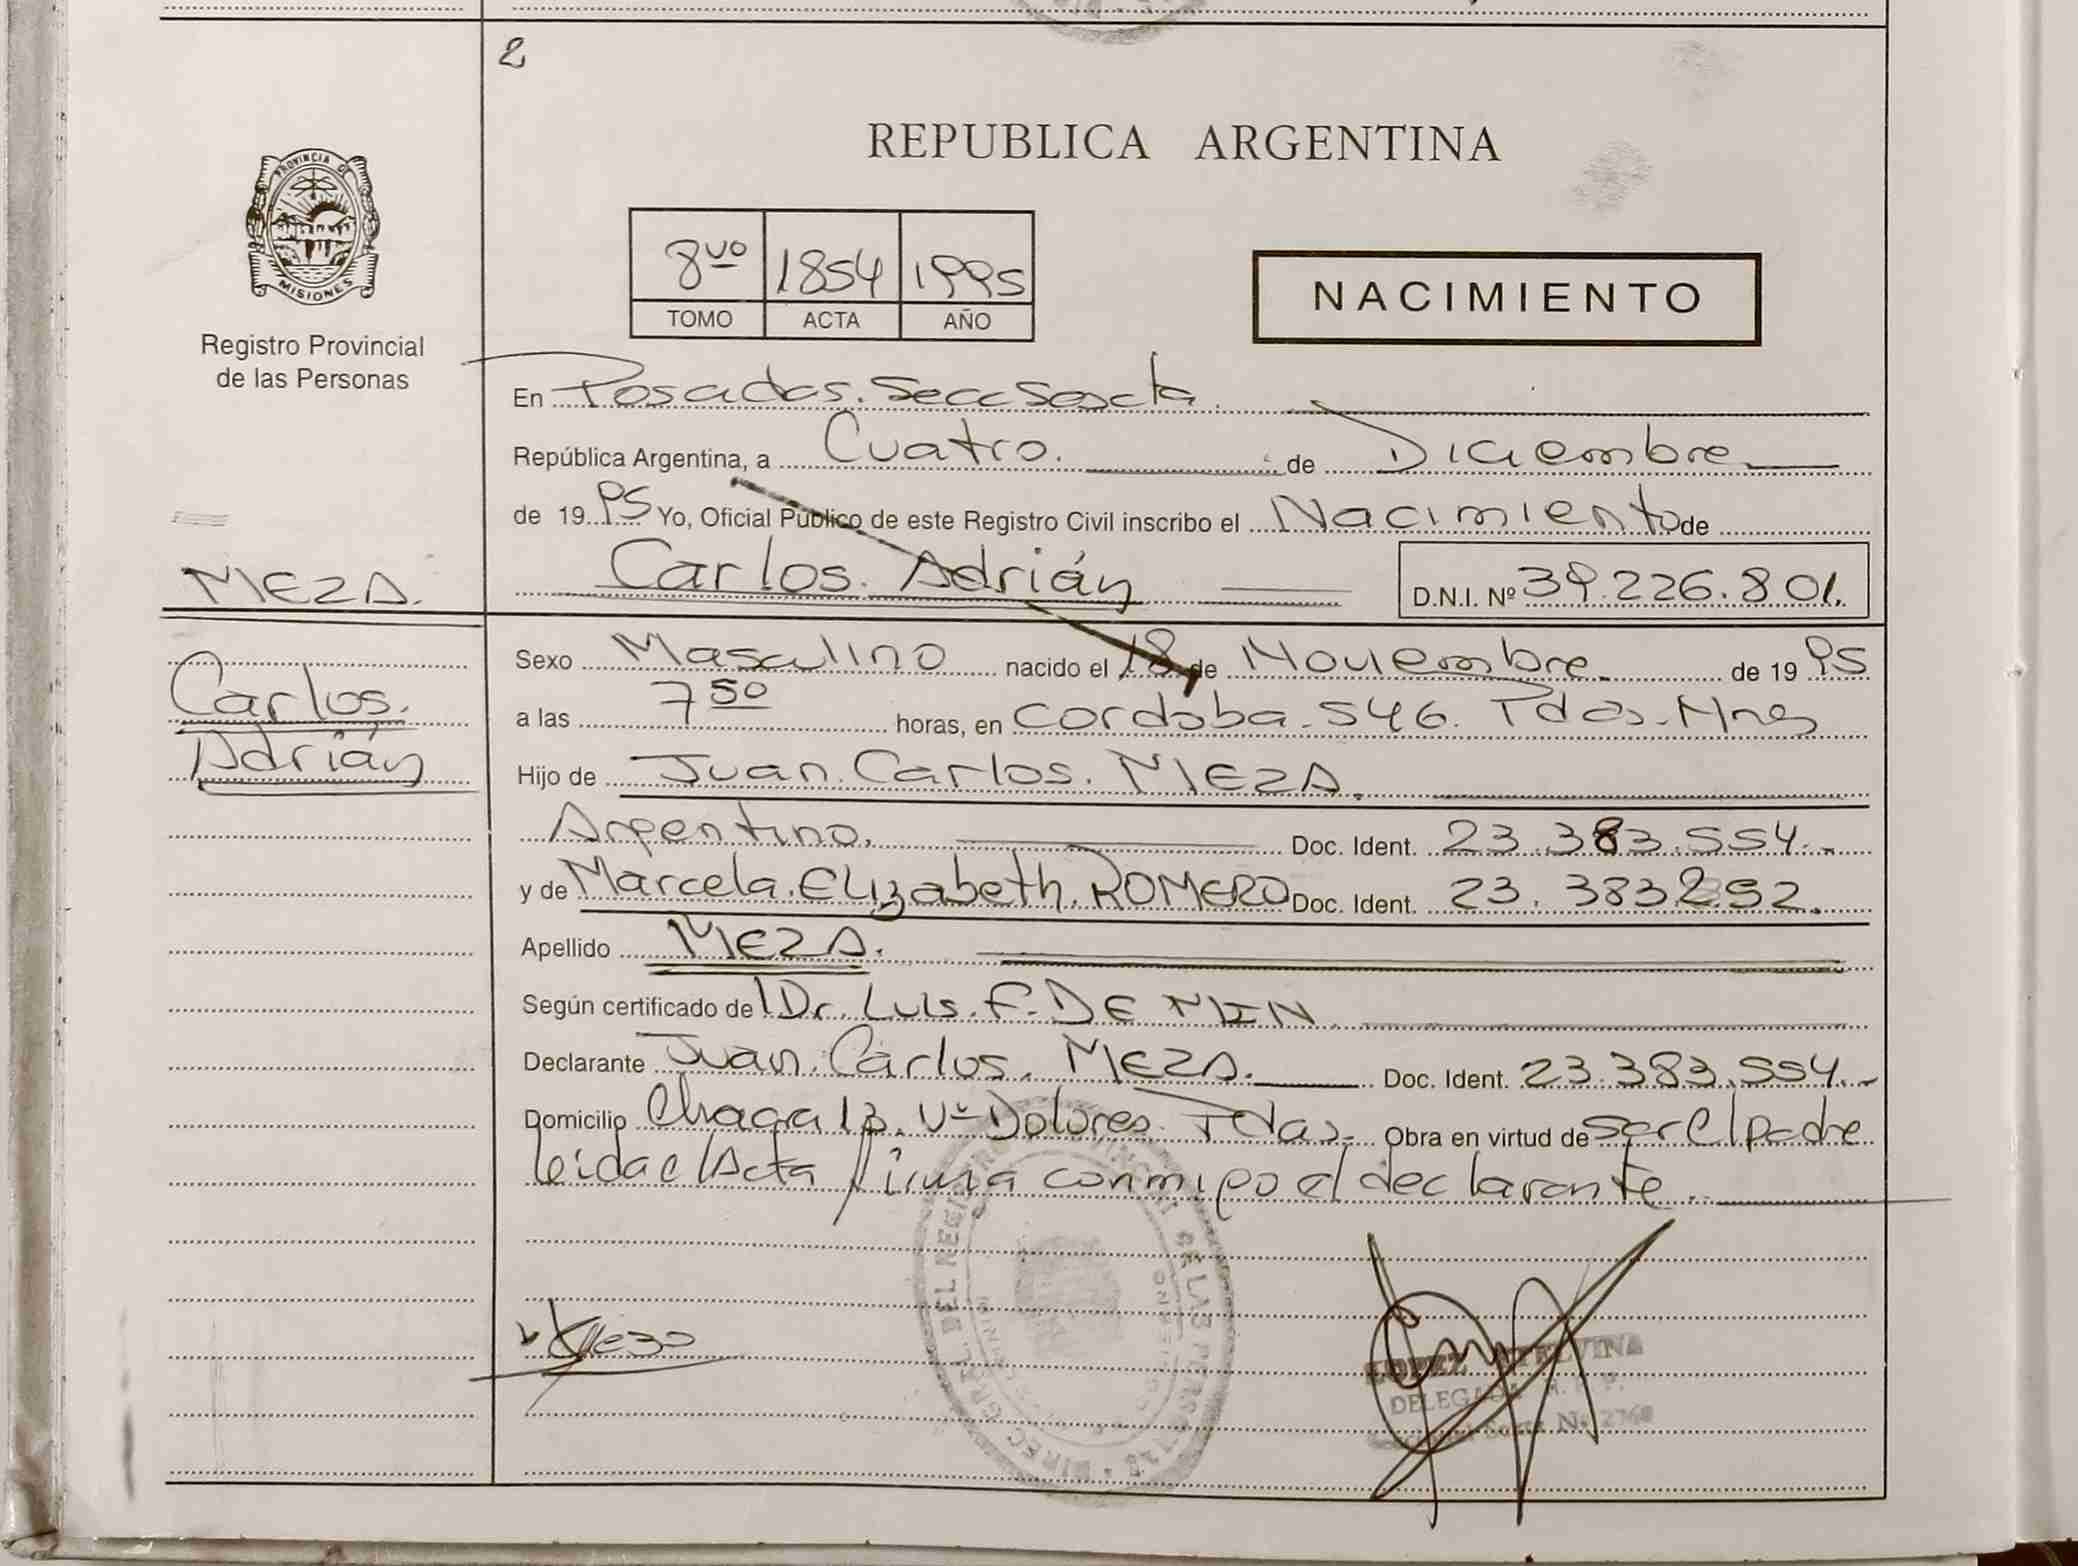 2
REPUBLICA ARGENTINA
PROVINCIA DE
MISIONES
Registro Provincial
de las Personas
8vo 1854 1995
TOMO ACTA AÑO
NACIMIENTO
En Posadas. Secc Sexta
República Argentina, a Cuatro. de Diciembre
de 1995 Yo, Oficial Público de este Registro Civil inscribo el Nacimiento de
MEZA.
Carlos. Adrián D.N.I. Nº 39.226.801.
Carlos.
Adrián
Sexo Masculino nacido el 18 de Noviembre. de 1995
a las 7 50 horas, en Cordoba. 546. Pdas. Mnes
Hijo de Juan. Carlos. MEZA.
Argentino. Doc. Ident. 23.383.554.-
y de Marcela. Elizabeth. ROMERO Doc. Ident. 23.383.252.
Apellido MEZA.
Según certificado de Dr. Luis. F. DE
Declarante Juan. Carlos. MEZA. Doc. Ident. 23.383.554.-
Domicilio Chacra 13. Vª Dolores. Pdas. Obra en virtud de ser el padre
leida el Acta firma conmigo el declarante.
DIREC. GRAL. DEL REGISTRO PROVINCIAL DE LAS PERSONAS
MISIONES
Meza
LOPEZ
DELEGADA R. P. P.
Sexta Nº 2768